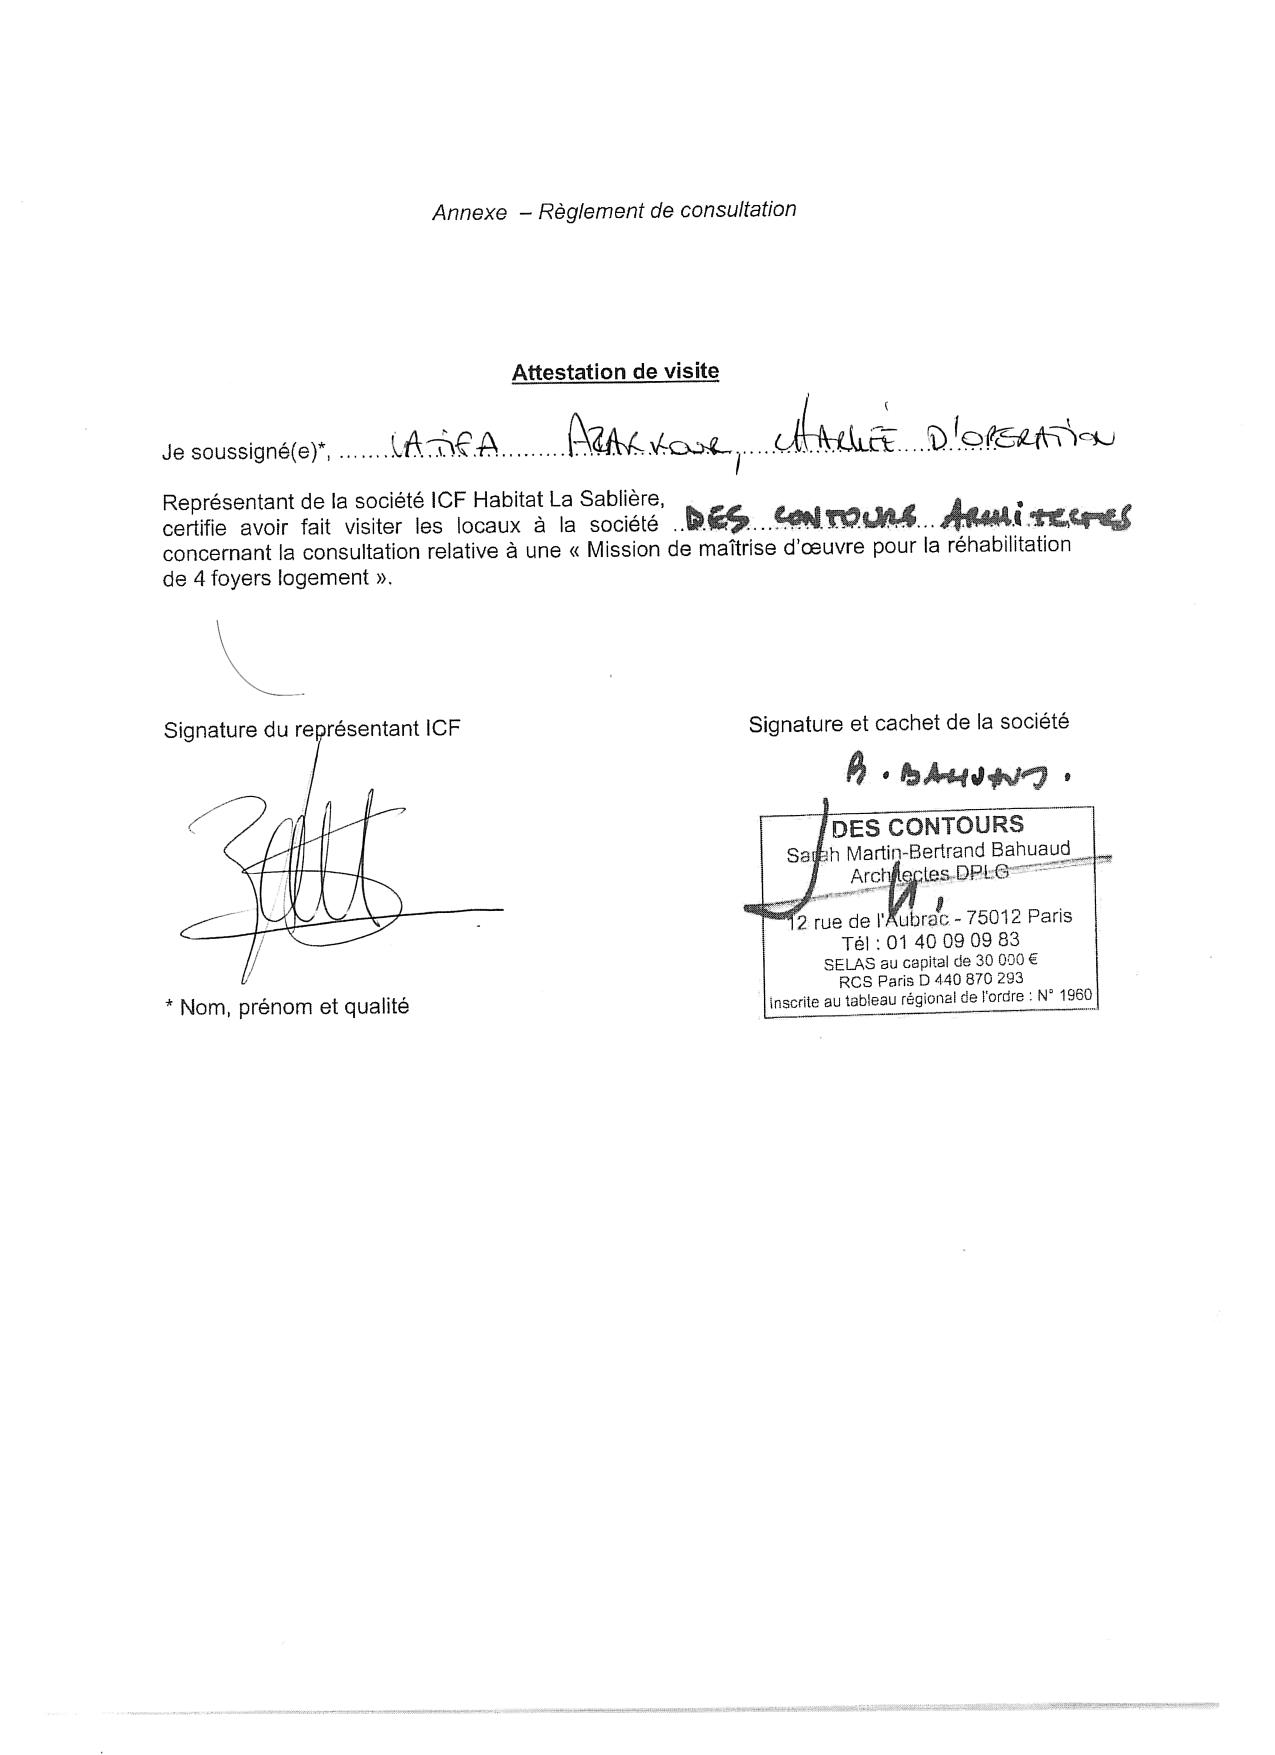 Annexe – Règlement de consultation
Attestation de visite
Je soussigné(e)*, ....... LATIFA ......... , CHARGÉE D'OPERATION
Représentant de la société ICF Habitat La Sablière,
certifie avoir fait visiter les locaux à la société .. DES CONTOURS ARCHITECTES
concernant la consultation relative à une « Mission de maîtrise d'œuvre pour la réhabilitation
de 4 foyers logement ».
Signature du représentant ICF
Signature et cachet de la société
B. BAHUAUD.
DES CONTOURS
Sarah Martin-Bertrand Bahuaud
Architectes DPLG
12 rue de l'Aubrac - 75012 Paris
Tél : 01 40 09 09 83
SELAS au capital de 30 000 €
RCS Paris D 440 870 293
Inscrite au tableau régional de l'ordre : N° 1960
* Nom, prénom et qualité